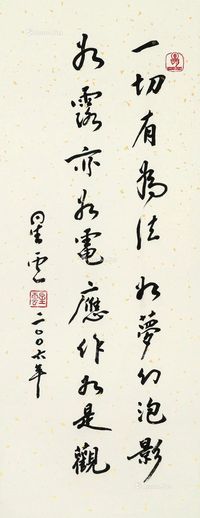 一切有為法如夢幻泡影
如露亦如電應作如是觀
星雲
二〇〇六年